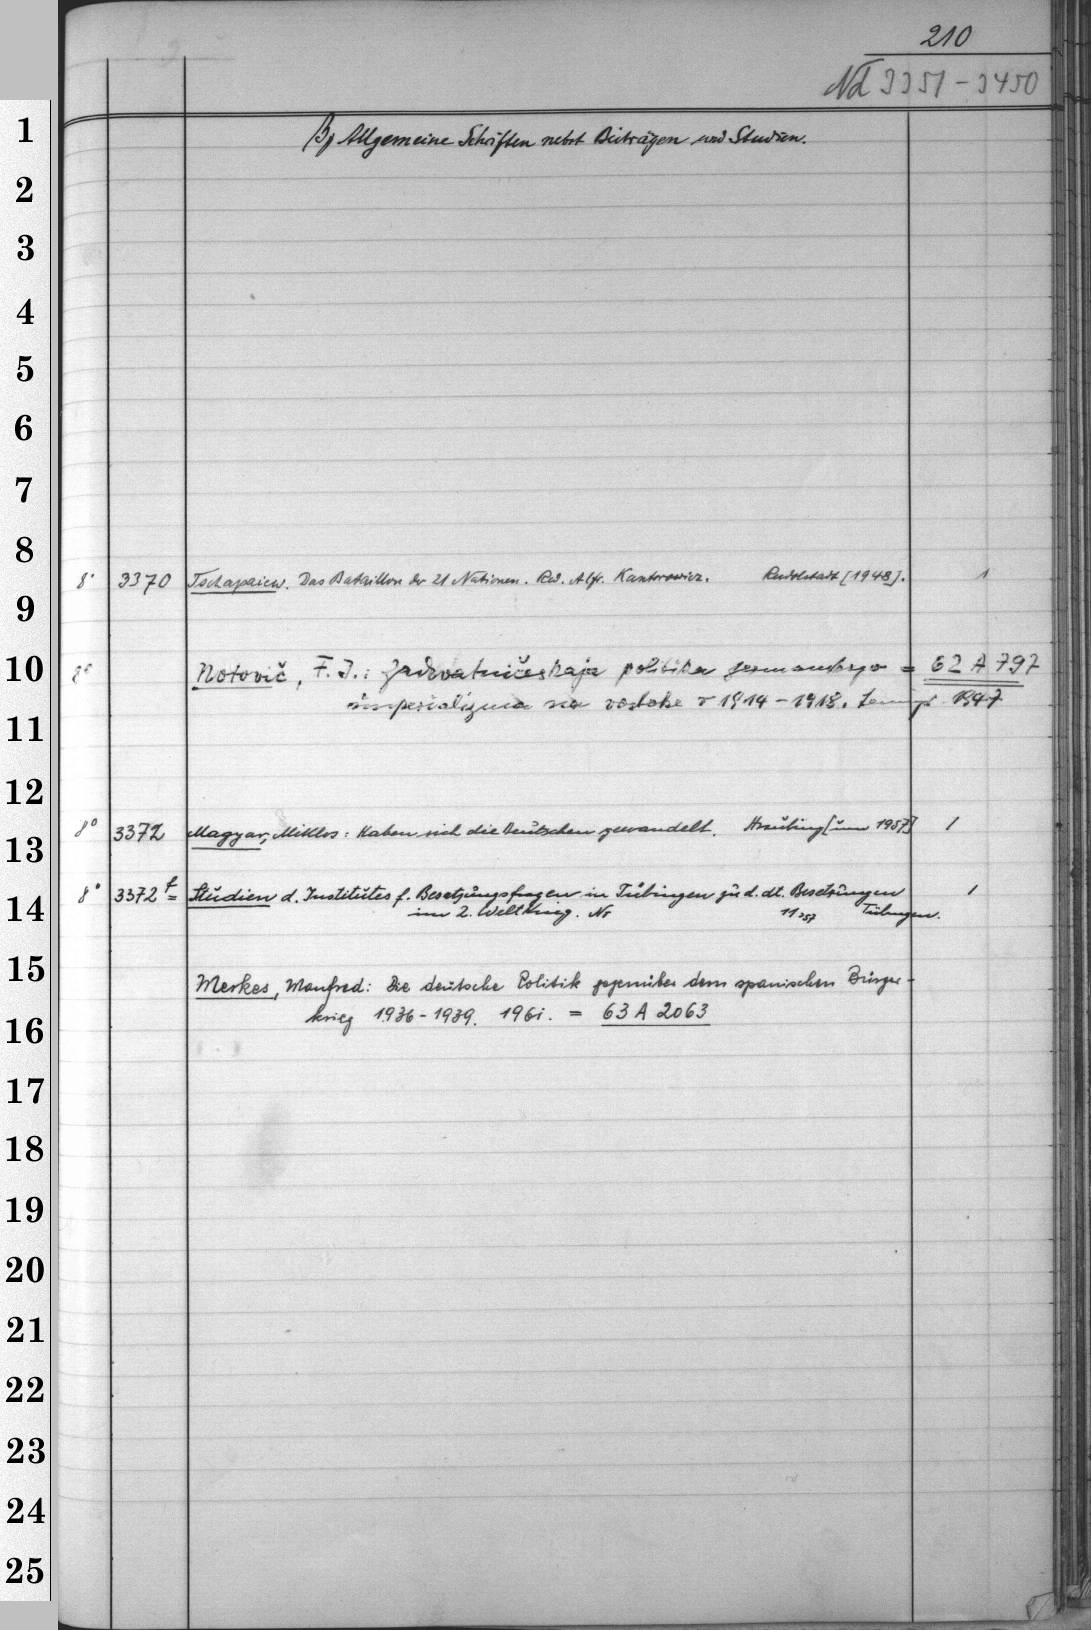 210
Nd 3351-3450
1
B) Allgemeine Schriften nebst Beiträgen und Studien.
2
3
4
5
6
7
8
8° 3370 Tschapaiew. Das Bataillon der 21 Nationen. Red. Alfr. Kantorowicz. Rudolstadt [1948]. 1
9
10
8° Notovič, F. I.: Zachvatničeskaja politika germanskogo = 62 A 797
imperializma na vostoke v 1914-1918. 1947
11
12
8° 3372 Magyar, Miklos: Haben sich die Deutschen gewandelt. [um 1957] 1
13
8° 3372 f = Studien d. Institutes f. Besetzungsfragen in Tübingen zu d. dt. Besetzungen 1
14
im 2. Weltkrieg. Nr 11,957 Tübingen.
15
Merkes, Manfred: Die deutsche Politik gegenüber dem spanischen Bürger-
krieg 1936-1939. 1961. = 63 A 2063
16
17
18
19
20
21
22
23
24
25